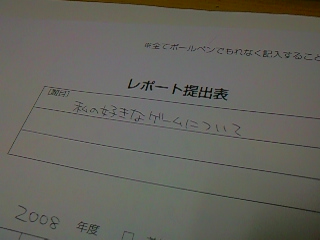 ※全てボールペンでもれなく記入すること
レポート提出表
私の好きなゲームについて
2008 年度 □